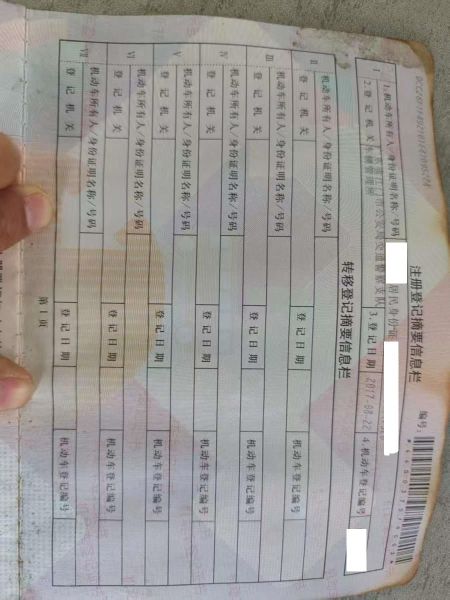 注册登记摘要信息栏
编号:
1.机动车所有人/身份证明名称/号码 居民身份证
2.登记机关 江门市公安局交通警察支队车辆管理所 3.登记日期 2017-08-22 4.机动车登记编号
转移登记摘要信息栏
II 机动车所有人/身份证明名称/号码
登记机关 登记日期 机动车登记编号
III 机动车所有人/身份证明名称/号码
登记机关 登记日期 机动车登记编号
IV 机动车所有人/身份证明名称/号码
登记机关 登记日期 机动车登记编号
V 机动车所有人/身份证明名称/号码
登记机关 登记日期 机动车登记编号
VI 机动车所有人/身份证明名称/号码
登记机关 登记日期 机动车登记编号
VII 机动车所有人/身份证明名称/号码
登记机关 登记日期 机动车登记编号
第1页